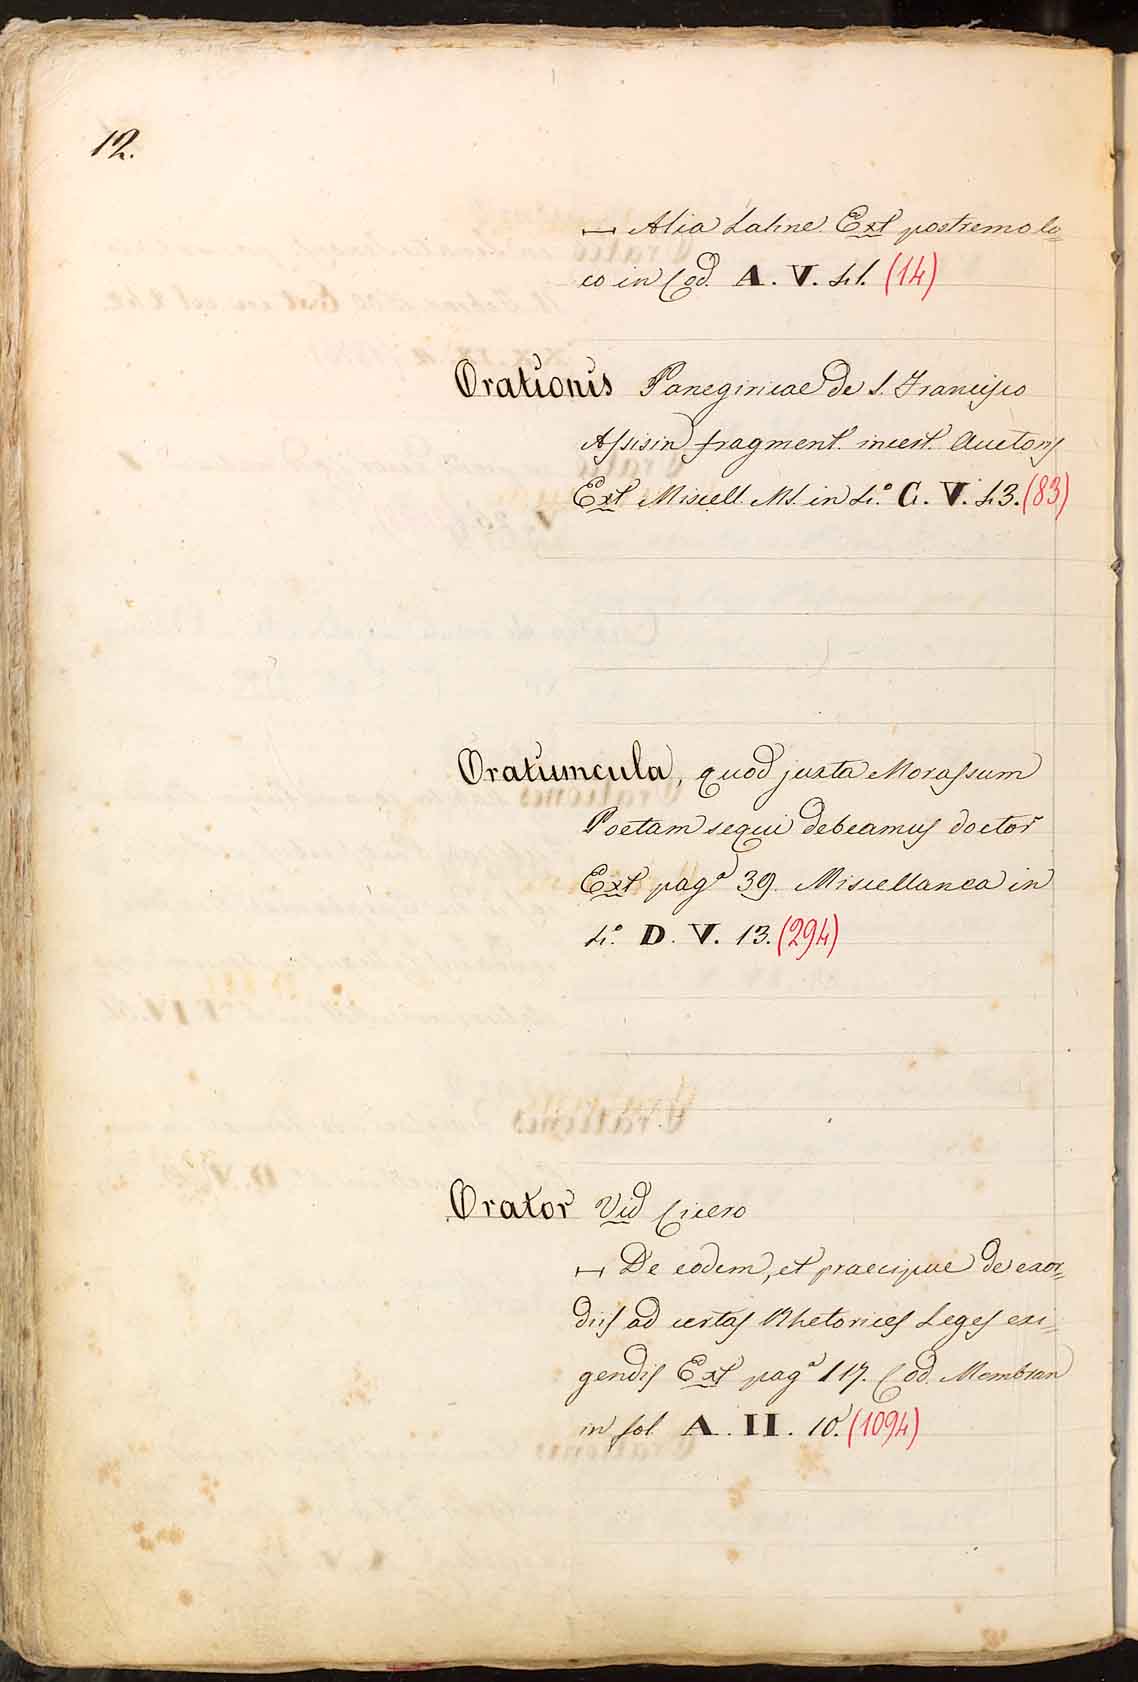 12.
⊢⊣ Alia Latine. Ext postremo lo=
co in Cod. A. V. 41. (14)
Orationis Panegiricae de S. Francisco
Assisin fragment. incert. Auctoris
Ext Miscell. Ms. in 4.º C. V. 43. (83)
Oratiumcula, quod juxta Morassum
Poetam sequi debeamus doctor
Ext pag.ª 39. Miscellanea in
4.º D. V. 13. (294)
Orator Vid Cicero
⊢⊣ De eodem, et praecipue de exor=
diis ad certas Rhetorices Leges exi=
gendis Ext pag.ª 117. Cod. Membran
in fol. A. II. 10. (1094)